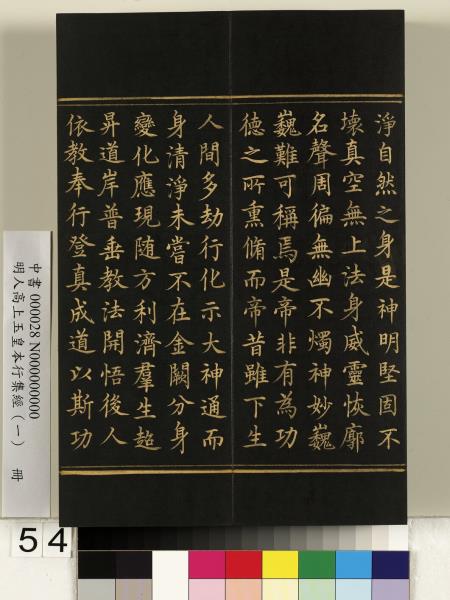 淨自然之身是神明堅固不
壞真空無上法身威靈恢廓
名聲周徧無幽不燭神妙巍
巍難可稱焉是帝非有為功
德之所熏脩而帝昔雖下生
人間多劫行化示大神通而
身清淨未嘗不在金闕分身
變化應現随方利濟羣生超
昇道岸普垂教法開悟後人
依教奉行登真成道以斯功
中書 000028 N000000000
明人高上玉皇本行集經（一） 冊
54